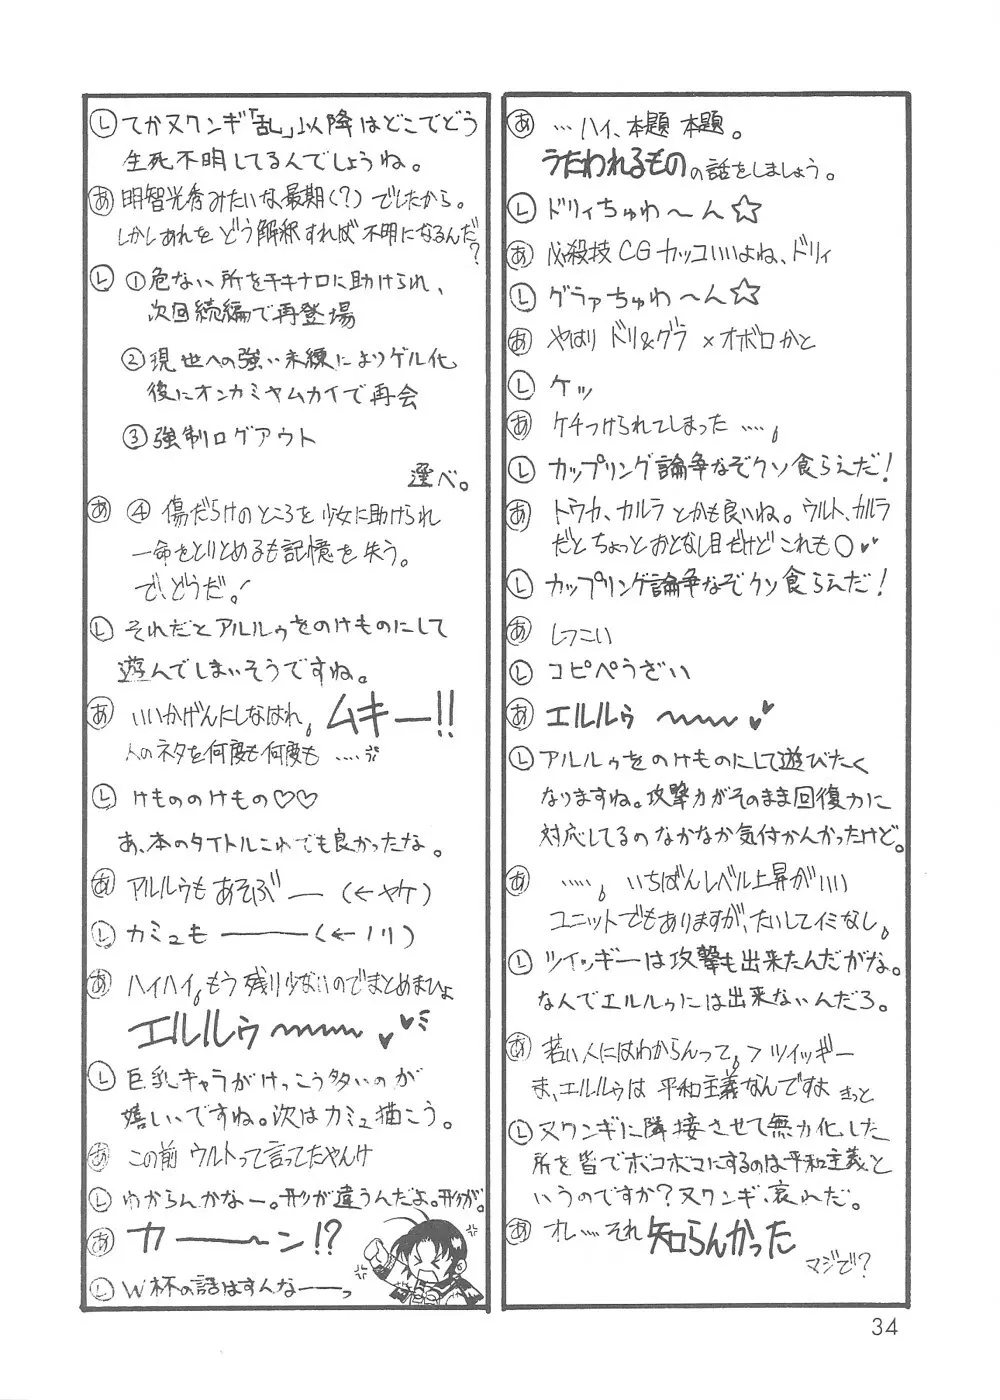 あ …ハイ、本題 本題。
うたわれるものの話をしましょう。
L ドリィちゅわ〜ん☆
あ 必殺技CGカッコいいよね、ドリィ
L グラァちゅわ〜ん☆
あ やはり ドリ&グラ×オボロかと
L ケッ
あ ケチつけられてしまった ……。
L カップリング論争なぞクソ食らえだ!
あ トウカ、カルラ とかも良いね。ウルト、カルラ
だとちょっとおとなし目だけどこれも○♥♥
L カップリング論争なぞクソ食らえだ!
あ しつこい
L コピペうざい
あ エルルゥ 〜〜〜♥♥
L アルルゥをのけものにして遊びたく
なりますね。攻撃力がそのまま回復力に
対応してるのなかなか気付かんかったけど。
あ ……。いちばんレベル上昇がいい
ユニットでもありますが、たいしてイミなし。
L ツイッギーは攻撃も出来たんだがな。
なんでエルルゥには出来ないんだろ。
あ 若い人にはわからんって。>ツイッギー
ま、エルルゥは 平和主義なんですよ きっと
L ヌワンギに隣接させて無力化した
所を皆でボコボコにするのは平和主義と
いうのですか?ヌワンギ、哀れだ。
あ オレ……それ知らんかった
マジで?
L てかヌワンギ「乱」以降はどこでどう
生死不明してるんでしょうね。
あ 明智光秀みたいな最期(?)でしたから。
しかしあれをどう解釈すれば不明になるんだ?
L ①危ない所をチキナロに助けられ、
次回続編で再登場
②現世への強い未練によりゲル化
後にオンカミヤムカイで再会
③強制ログアウト
選べ。
あ ④傷だらけのところを少女に助けられ
一命をとりとめるも記憶を失う。
で、どうだ!
L それだとアルルゥをのけものにして
遊んでしまいそうですね。
あ いいかげんにしなはれ。ムキー!!
人のネタを何度も何度も ……
L けもののけもの♡♡
あ、本のタイトルこれでも良かったな。
あ アルルゥもあそぶ──(←ヤケ)
L カミュも ───(←ノリ)
あ ハイハイ。もう残り少ないのでまとめまひょ
エルルゥ 〜〜〜♥♥
L 巨乳キャラがけっこう多いのが
嬉しいですね。次はカミュ描こう。
あ この前 ウルトって言ってたやんけ
L わからんかなー。形が違うんだよ。形が。
あ カ──〜ン!?
L W杯の話はすんな──っ
34